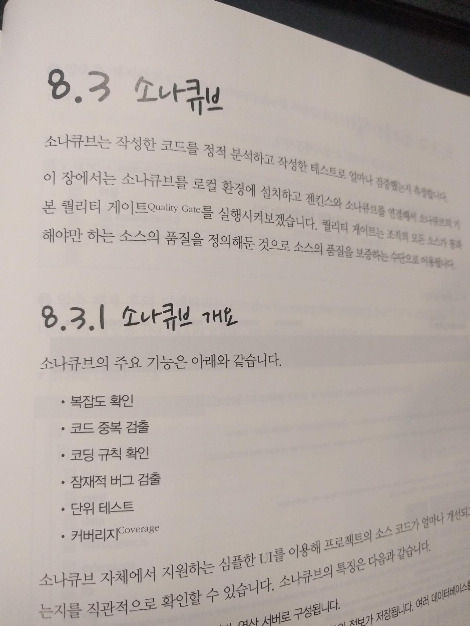 8.3 소나큐브
소나큐브는 작성한 코드를 정적 분석하고 작성한 테스트로 얼마나 검증했는지 측정합니다.
이 장에서는 소나큐브를 로컬 환경에 설치하고 젠킨스와 소나큐브를 연결해서 소나큐브의 기
본 퀄리티 게이트Quality Gate를 실행시켜보겠습니다. 퀄리티 게이트는 조직의 모든 소스가 통과
해야만 하는 소스의 품질을 정의해둔 것으로 소스의 품질을 보증하는 수단으로 이용됩니다.
8.3.1 소나큐브 개요
소나큐브의 주요 기능은 아래와 같습니다.
• 복잡도 확인
• 코드 중복 검출
• 코딩 규칙 확인
• 잠재적 버그 검출
• 단위 테스트
• 커버리지Coverage
소나큐브 자체에서 지원하는 심플한 UI를 이용해 프로젝트의 소스 코드가 얼마나 개선되
는지를 직관적으로 확인할 수 있습니다. 소나큐브의 특징은 다음과 같습니다.
연산 서버로 구성됩니다.
정보가 저장됩니다. 여러 데이터베이스를